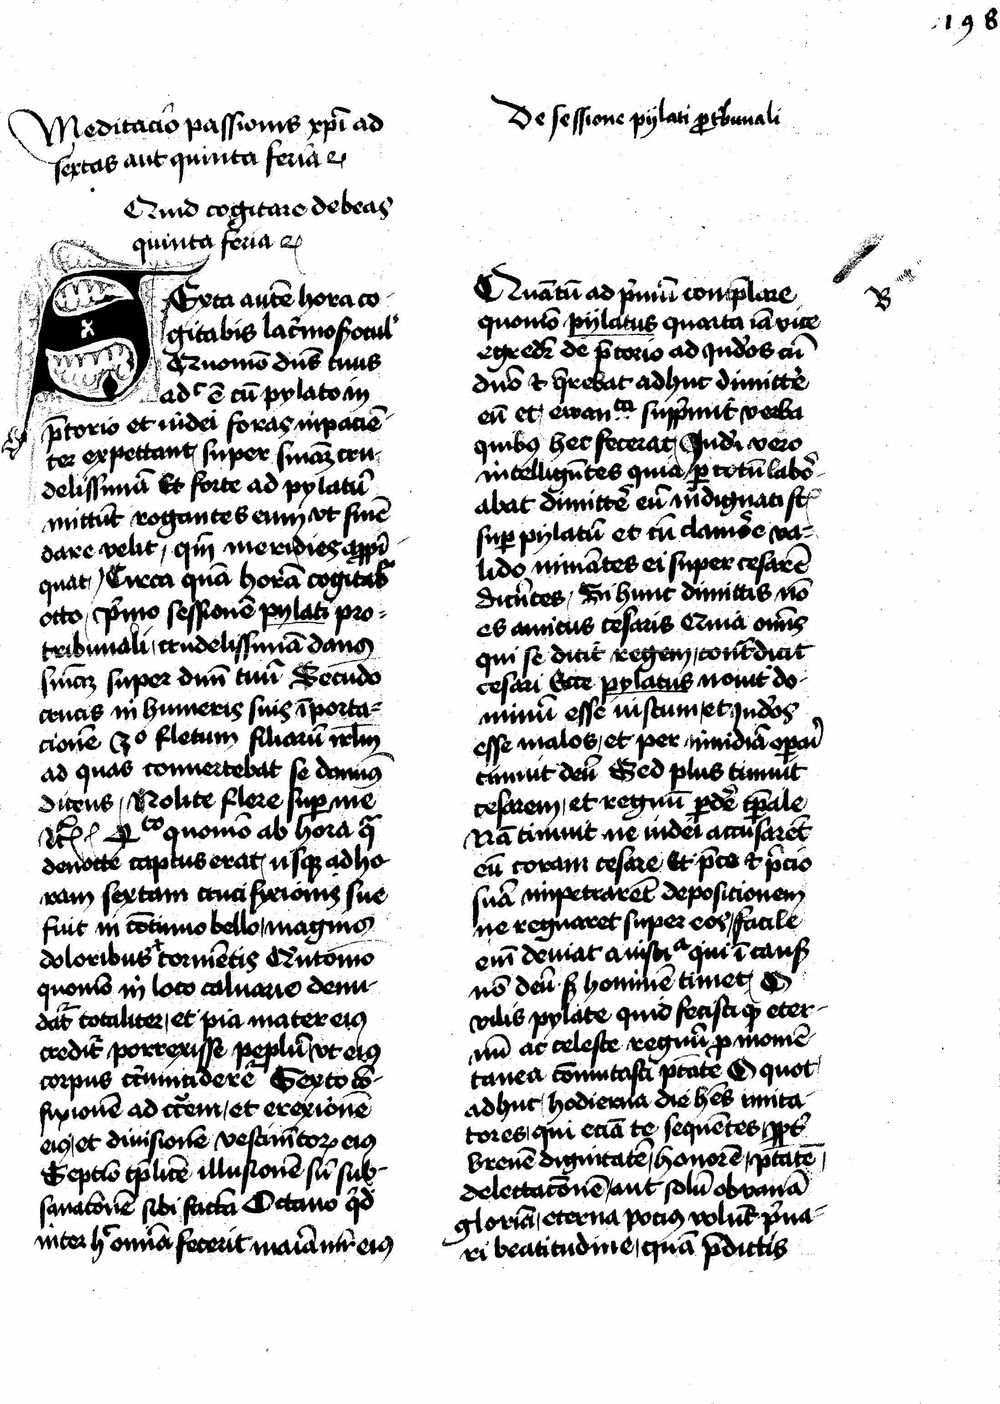 198
Meditacio passionis xpi ad
sextas aut quinta feria
Quid cogitare debeas
quinta feria
Sexta autē hora co-
gitabis lacrimosꝫ ocul'
Quomō dn̄s tuus
adᶜ ē cū pylato in
p̄torio et iudei foras inpaciē-
ter expettant super suīaꝫ cru-
delissimā Et forte ad pylatū
mittūt rogantes eum vt suīē
dare velit, qm̄ meridies app̄i-
quat, Circa quā horā cogitab'
otto, p̄mo sessionē pylati pro-
tribunali, crudelissimā danꝰ
suīaꝫ super dnm̄ tuū Secūdo
crucis in humeris suis īporta-
cionē 3º fletum filiarū irlm̄
ad quas conuertebat se domiꝰ
dicens, Nolite flere sup me
Qrto quomō ab hora qͣ
denotte captus erat, usqꝫ ad ho-
ram sextam crucifixionis sue
fuit in cōtinuo bello, magnis
doloribus ⁊ tormētis Quīto
quomō in loco caluarie denu-
dat' totaliter, et pia mater eiꝰ
credit' porrexisse peplū, vt eiꝰ
corpus circūciderē Sexto cō-
fixionē ad crucem, et erexionē
eiꝰ, et diuisionē vestimētoꝝ eiꝰ
Septīo tp̄licē illusionē sū sub-
sanacōnē sibi factā Octauo qd
inter hͨ omīa fecerit maīa mr̄ eiꝰ
De sessione pylati p̄ tbunali
B
Quātū ad p̄mū contēplare
quomō pylatus quarta iā vice
egredit' de p̄torio ad iudeos cū
dnō ⁊ q̄rebat adhuc dimittē
eū et, ewanᵗᵃ supp̄mit verba
quibꝰ hec fecerat, Iudei vero
intelligētes quia p totū labō-
abat dimittē eū, indignati sᵗ
sup pylatū et cū clamōe va-
lido minātes ei super cesarē
dicētes, Si hunc dimittis nō
es amicus cesaris Quia omīs
qui se dicit regem, contᵈdicit
cesari Ecce pylatus nouit do-
minū esse iustum, et iudeos
esse malos, et per inuidiā opāi
timuit deū Sed plus timuit
cesarem, et regnū pdē tp̄ale
Nā timuit ne iudei accusarēt
eū coram cesare Et p̄ce ⁊ p̄cio
suā impetrarēt depositionem
ne regnaret super eos, facile
eīm deuiat a iustiᵃ qui ī causa
nō deū sꝫ hominē timet, O
vilis pylate quid fecisti qꝫ eter-
nū ac celeste regnū p momē-
tanea cōmutasti ptāte O quot
adhuc, hodierna die hēs imita-
tores, qui eciā te sequētes, ppt'
breuē dignitatē, honorē, ptātē,
delectacōnē, aut solū ob vanā
gloriā, eterna pociꝰ volūt p̄ua-
ri beatitudine, quā p̄dictis